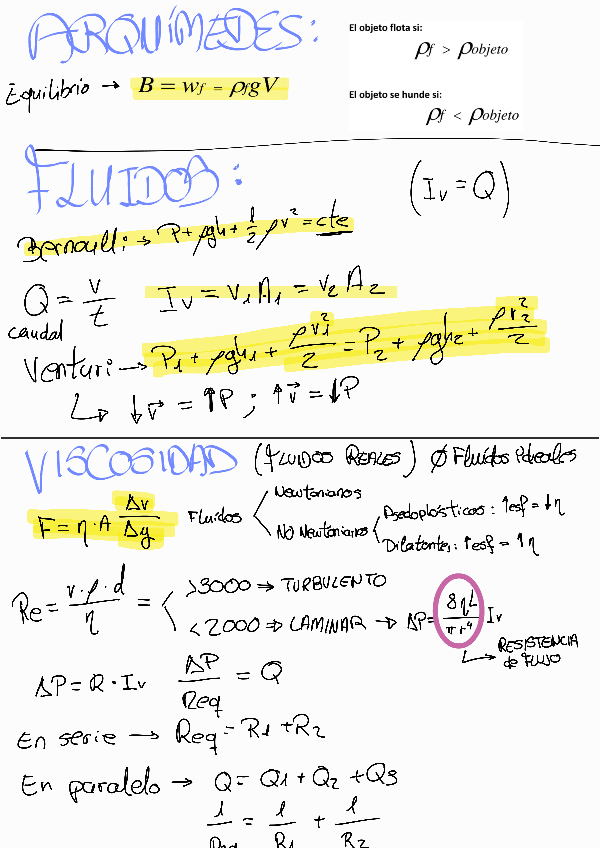 ARQUÍMEDES:
El objeto flota si:
ρf > ρobjeto
Equilibrio → B = wf = ρfgV
El objeto se hunde si:
ρf < ρobjeto
FLUIDOS:
(Iv = Q)
Bernoulli: → P + ρgh + 1/2 ρv² = cte
Q = v/t Iv = v1A1 = v2A2
caudal
Venturi → P1 + ρgh1 + ρv1²/2 = P2 + ρgh2 + ρv2²/2
↳ ↓v⃗ = ↑P ; ↑v⃗ = ↓P
VISCOSIDAD (FLUIDOS REALES) Ø Fluidos ideales
F = η·A Δv/Δy
Fluidos < Newtonianos
No Newtonianos < Psedoplásticos: ↑esf = ↓η
Dilatantes: ↑esf = ↑η
Re = v·ρ·d/η = < >3000 → TURBULENTO
<2000 ⇒ LAMINAR → ΔP = 8ηL/πr⁴ Iv
↳ RESISTENCIA
de FLUJO
ΔP = R · Iv ΔP/Req = Q
En serie → Req = R1 + R2
En paralelo → Q = Q1 + Q2 + Q3
1/Req = 1/R1 + 1/R2